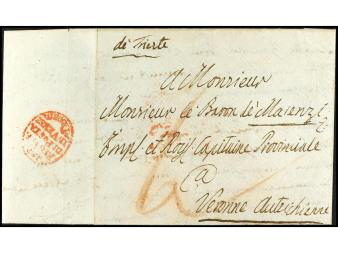 de Trieste
A Monsieur
Monsieur le Baron de Maienzi
Impl et Royl Capitaine Provinciale
a
Veronne Autrichienne